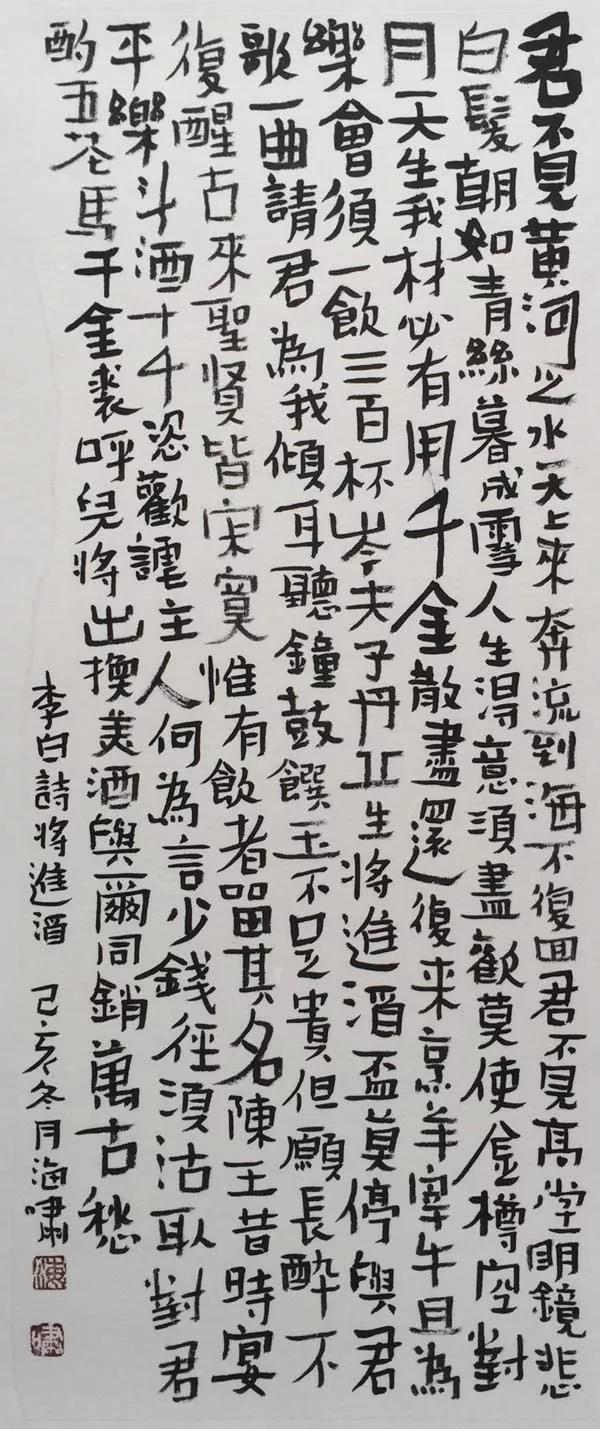 君不見黃河之水天上來奔流到海不復回君不見高堂明鏡悲
白髮朝如青絲暮成雪人生得意須盡歡莫使金樽空對
月天生我材必有用千金散盡還復来烹羊宰牛且為
樂會須一飲三百杯岑夫子丹丘生將進酒盃莫停與君
歌一曲請君為我傾耳聽鐘鼓饌玉不足貴但願長醉不
復醒古來聖賢皆寂寞惟有飲者留其名陳王昔時宴
平樂斗酒十千恣歡謔主人何為言少錢徑須沽取對君
酌五花馬千金裘呼兒將出換美酒與爾同銷萬古愁
李白詩將進酒 己亥冬月海嘯